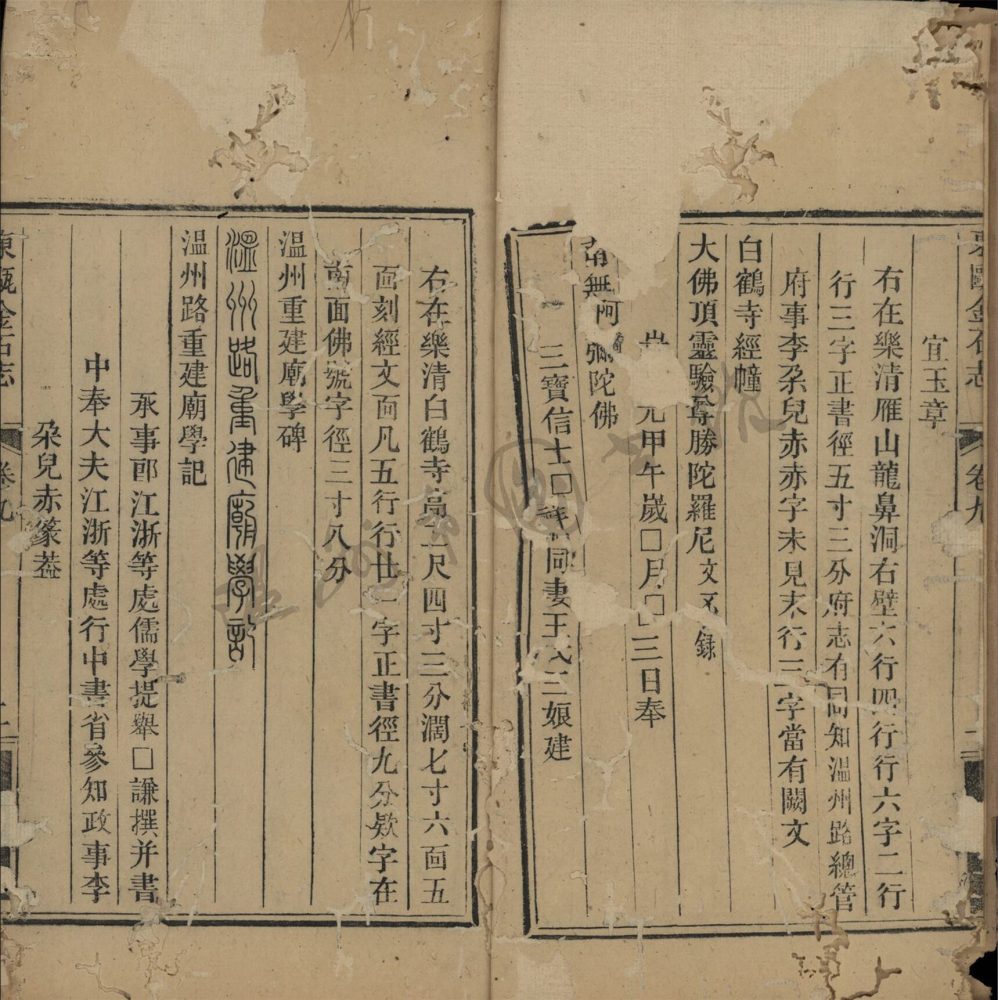 宜玉章
右在樂清雁山龍鼻洞右壁六行四行行六字二行
行三字正書徑五寸三分府志有同知温州路總管
府事李朶兒赤赤字未見末行三字當有闕文
白鶴寺經幢
大佛頂靈驗尊勝陀羅尼文不錄
元甲午歲□月□□三日奉
南無阿彌陀佛
三寶信士□同妻王氏三娘建
右在樂清白鶴寺高二尺四寸三分濶七寸六面五
面刻經文面凡五行行廿一字正書徑九分欵字在
南面佛號字徑三寸八分
温州重建廟學碑
溫州路重建廟學記
温州路重建廟學記
承事郎江浙等處儒學提舉□謙撰并書
中奉大夫江浙等處行中書省參知政事李
朶兒赤篆葢
東甌金石志
卷九